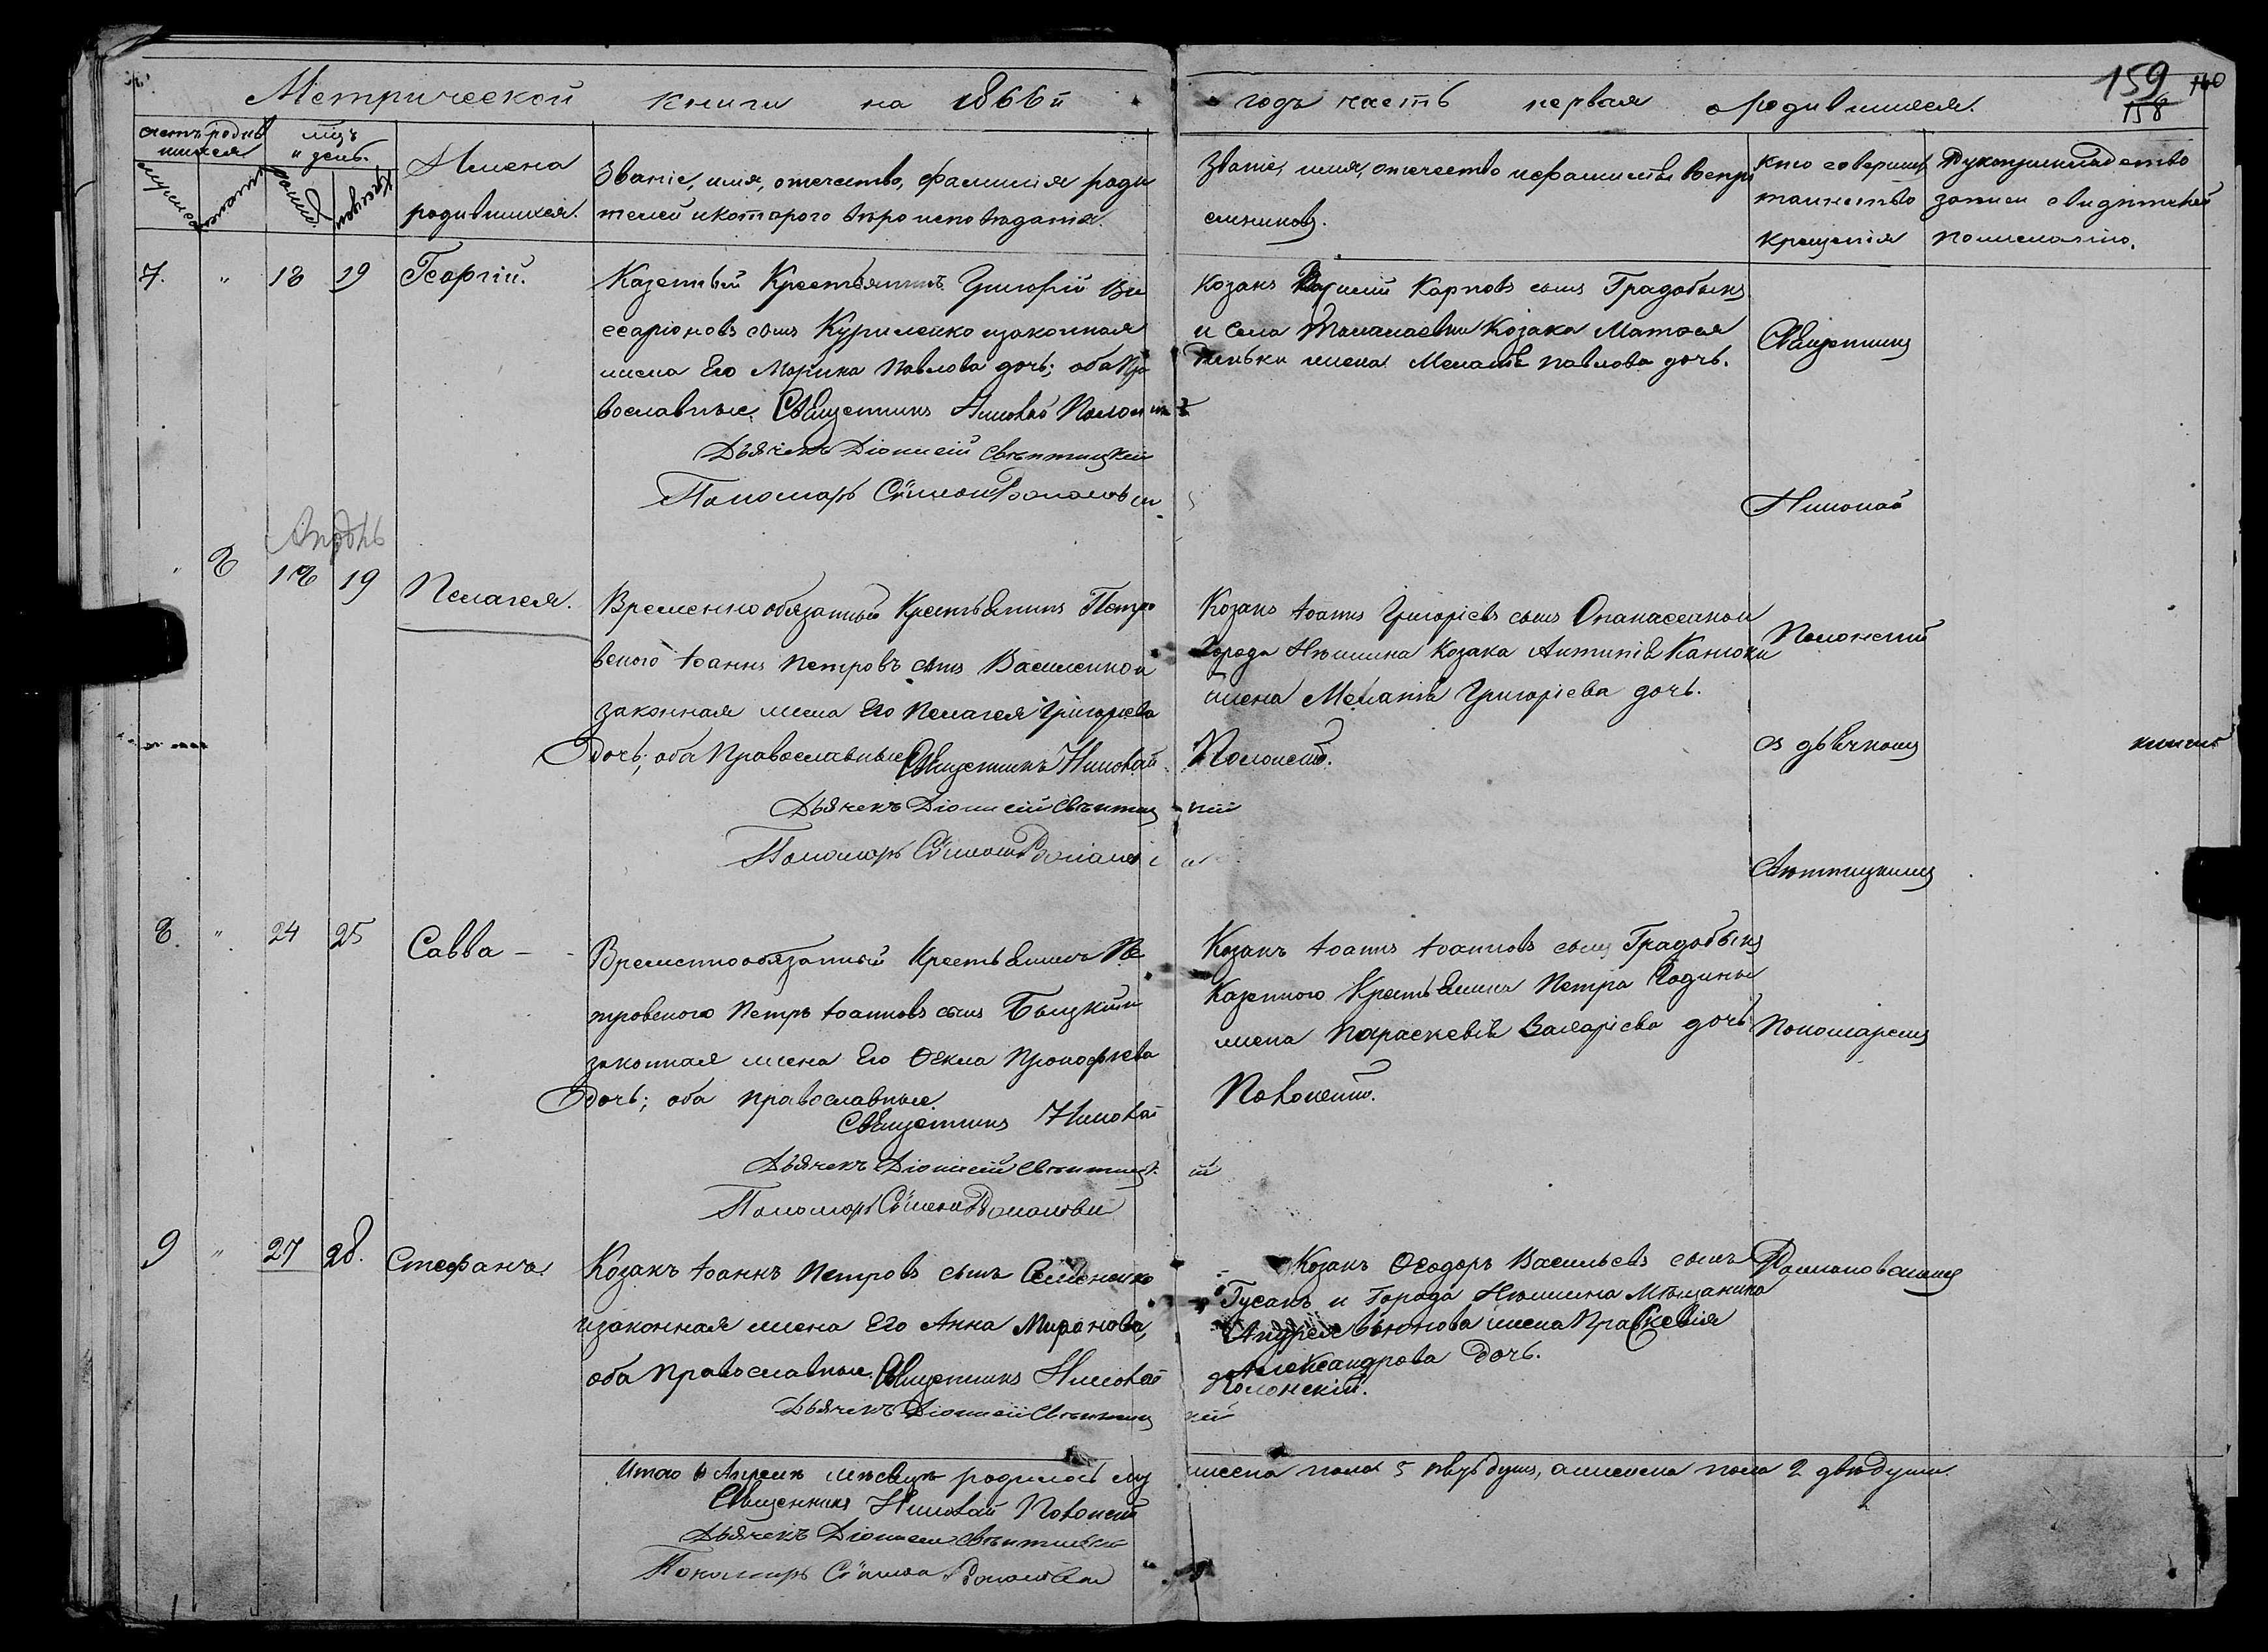 Метрической книги на 1866й годъ часть первая о родившихся.
159
158
160
счетъ родив
шихся
мцъ
и день.
Имена
родившихся.
Званіе, имя, отечество, фамилія роди
телей и которого вѣроисповѣданія.
Званіе, имя, отечество и фамилія воспрі
емниковъ.
Кто совершалъ
таинство
крещенія
Рукоприкладство
записи свидѣтелей
по желанію.
7. " 18 19 Георгій.
Казенный Крестьянинъ Григорій Ви
саріоновъ сынъ Куриленко и законная
жена Его Марина Павлова дочь; оба Пра
вославные. Священникъ Николай Полонскій
Дьячекъ Діонисій Свѣнтицкій
Пономарь Сѵмеонъ Романовскій
Козакъ Василій Карповъ сынъ Градобыкъ
и Села Талалаевки Козака Матвея
жена Меланія Павлова дочь.
Священникъ
Николай
Апрѣль
" 8 18 19 Пелагея.
Временнообязанный Крестьянинъ Петро
вского Іоаннъ Петровъ сынъ Василенко и
законная жена Его Пелагея Григорьева
дочь; оба Православные. Священникъ Николай Полонскій.
Дьячекъ Діонисій Свѣнтицкій
Пономарь Сѵмеонъ Романовскій
Козакъ Іоаннъ Григоріевъ сынъ Опанасенко и
Города Нѣжина Козака Антипія Канюки
жена Меланія Григоріева дочь.
Полонскій
съ дьячкомъ
Свѣнтицкимъ
8. " 24 25 Савва
Временнообязанный Крестьянинъ Пе
тровского Петръ Іоанновъ сынъ Быцкий и
законная жена Его Ѳекла Прокофіева
дочь; оба православные.
Священникъ Николай Полонскій.
Дьячекъ Діонисій Свѣнтицкій
Пономарь Сѵмеонъ Романовскій
Козакъ Іоаннъ Іоанновъ сынъ Градобыкъ
Казенного Крестьянина Петра Годины
жена Параскевія Захаріева дочь
Пономаремъ
9 " 27 28. Стефанъ
Козакъ Іоаннъ Петровъ сынъ Семененко
и законная жена Его Анна Миронова,
оба Православные. Священникъ Николай Полонскій.
Дьячекъ Діонисій Свѣнтицкій
Козакъ Ѳеодоръ Васильевъ сынъ
Гусакъ и Города Нѣжина Мѣщанина
Андрея Вьюнова жена Праскевія
Александрова дочь.
Романовскимъ
Итого въ Апрелѣ мѣсяцѣ родилось мужеска пола 5 пять душъ, а женска пола 2 двѣ души.
Священникъ Николай Полонскій
Дьячекъ Діонисій Свѣнтицкій
Пономарь Сѵмеонъ Романовскій